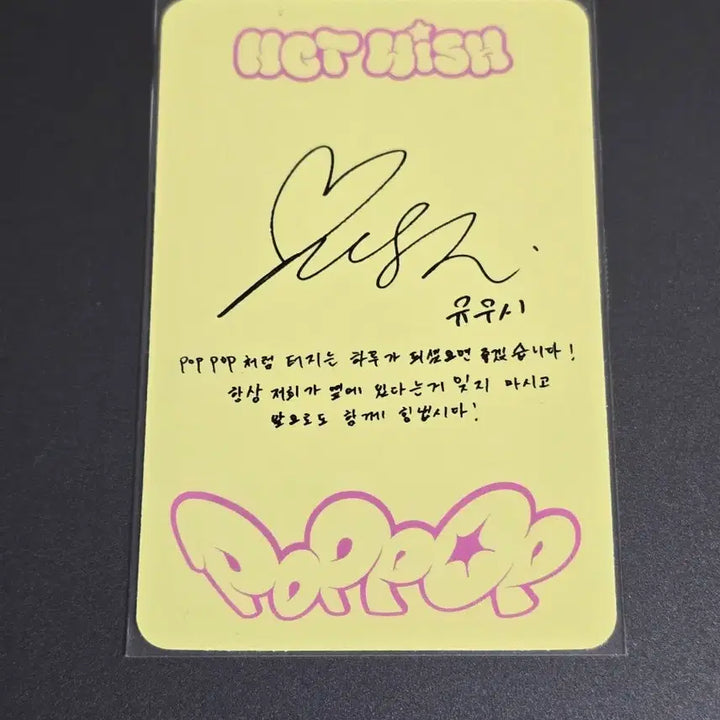 NCT WISH
Yushi.
유우시
POP POP 처럼 터지는 하루가 되셨으면 좋겠습니다!
항상 저희가 옆에 있다는거 잊지 마시고
앞으로도 함께 힘냅시다!
POPPOP